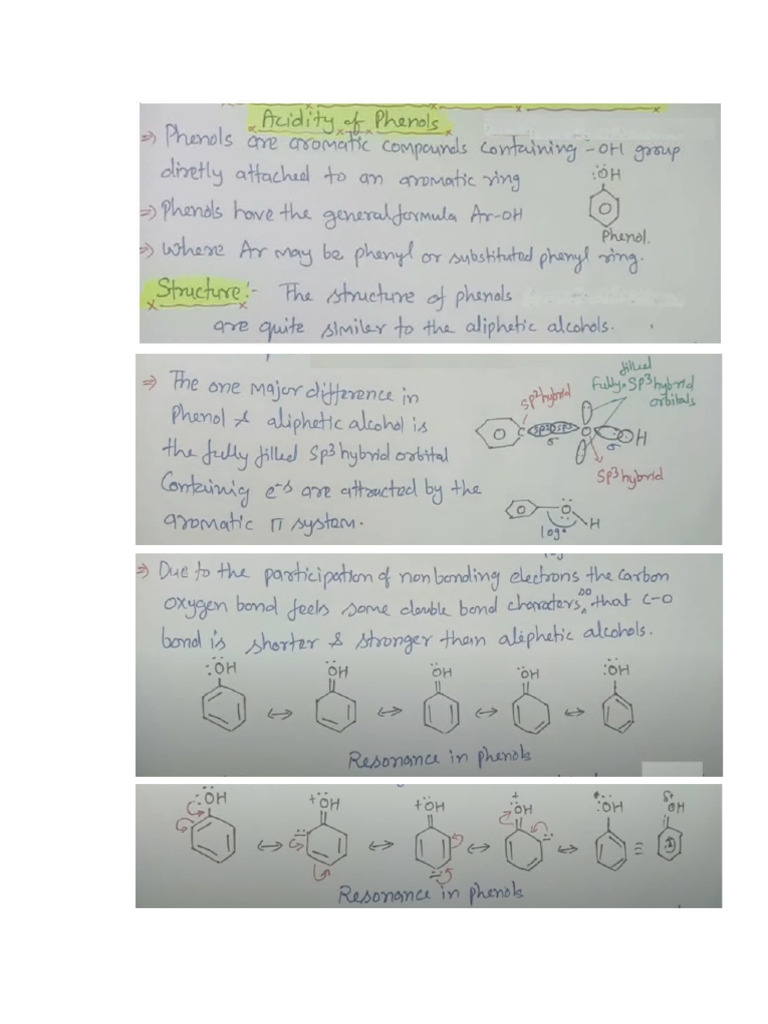 Acidity of Phenols
⇒ Phenols are aromatic compounds containing -OH group
diretly attached to an aromatic ring
:ÖH
⇒ Phenols have the general formula Ar-OH
Phenol.
⇒ Where Ar may be phenyl or substituted phenyl ring.
Structure:- The structure of phenols
are quite similer to the aliphetic alcohols.
⇒ The one major difference in
Phenol & aliphetic alcohol is
the fully filled Sp3 hybrid orbital
Containig e-s are attracted by the
aromatic π system.
filled
Fully Sp3 hybrid
orbitals
Sp2 hybrid
C sp2 sp3 O H
σ σ
Sp3 hybrid
O H
109°
⇒ Due to the participation of nonbonding electrons the carbon
oxygen bond feels some double bond charaters, so that C-O
bond is shorter & stronger than aliphetic alcohols.
:ÖH ↔ ÖH ↔ ÖH ↔ ÖH ↔ :ÖH
Resonance in phenols
:ÖH ↔ +ÖH ↔ +ÖH ↔ +ÖH ↔ :ÖH ≡ δ+ ÖH
Resonance in phenols